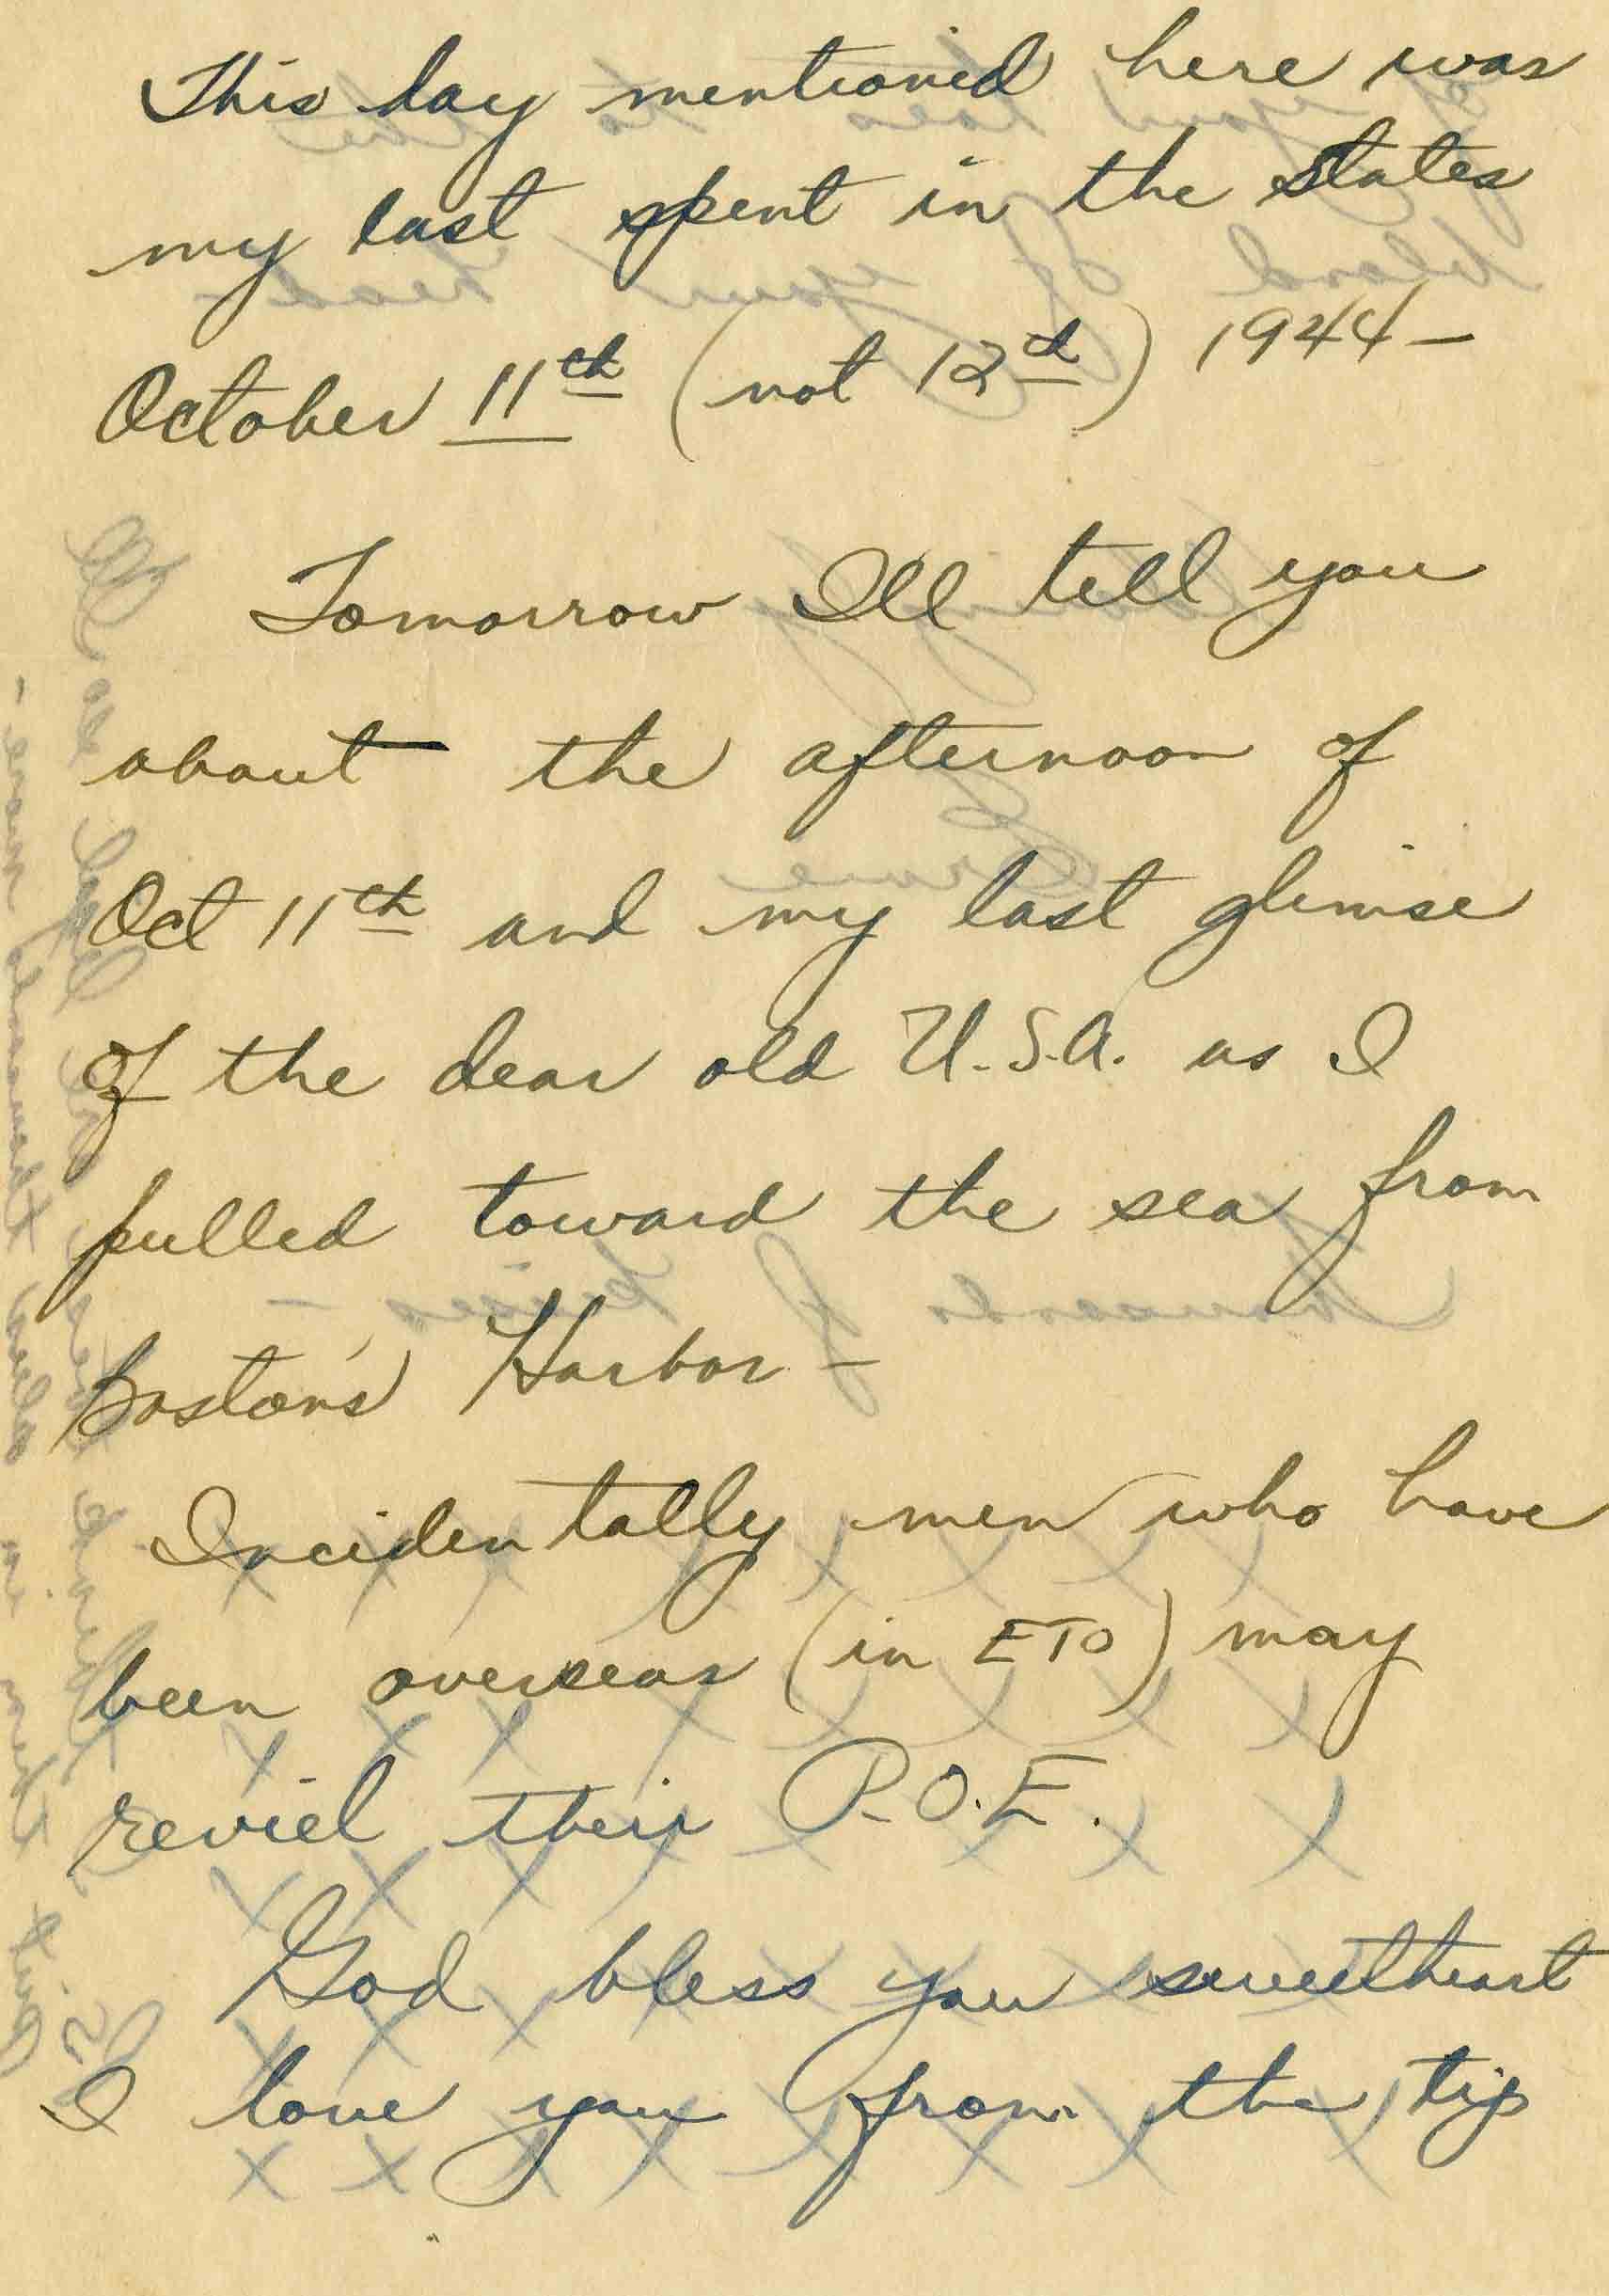 This day mentioned here was
my last spent in the states
October 11th (not 12d) 1944 –
Tomorrow Ill tell you
about the afternoon of
Oct 11th and my last glimse
of the dear old U.S.A. as I
pulled toward the sea from
Boston's Harbor –
Incidentally men who have
been overseas (in ETO) may
reviel their P.O.E.
God bless you sweetheart
I love you from the tip